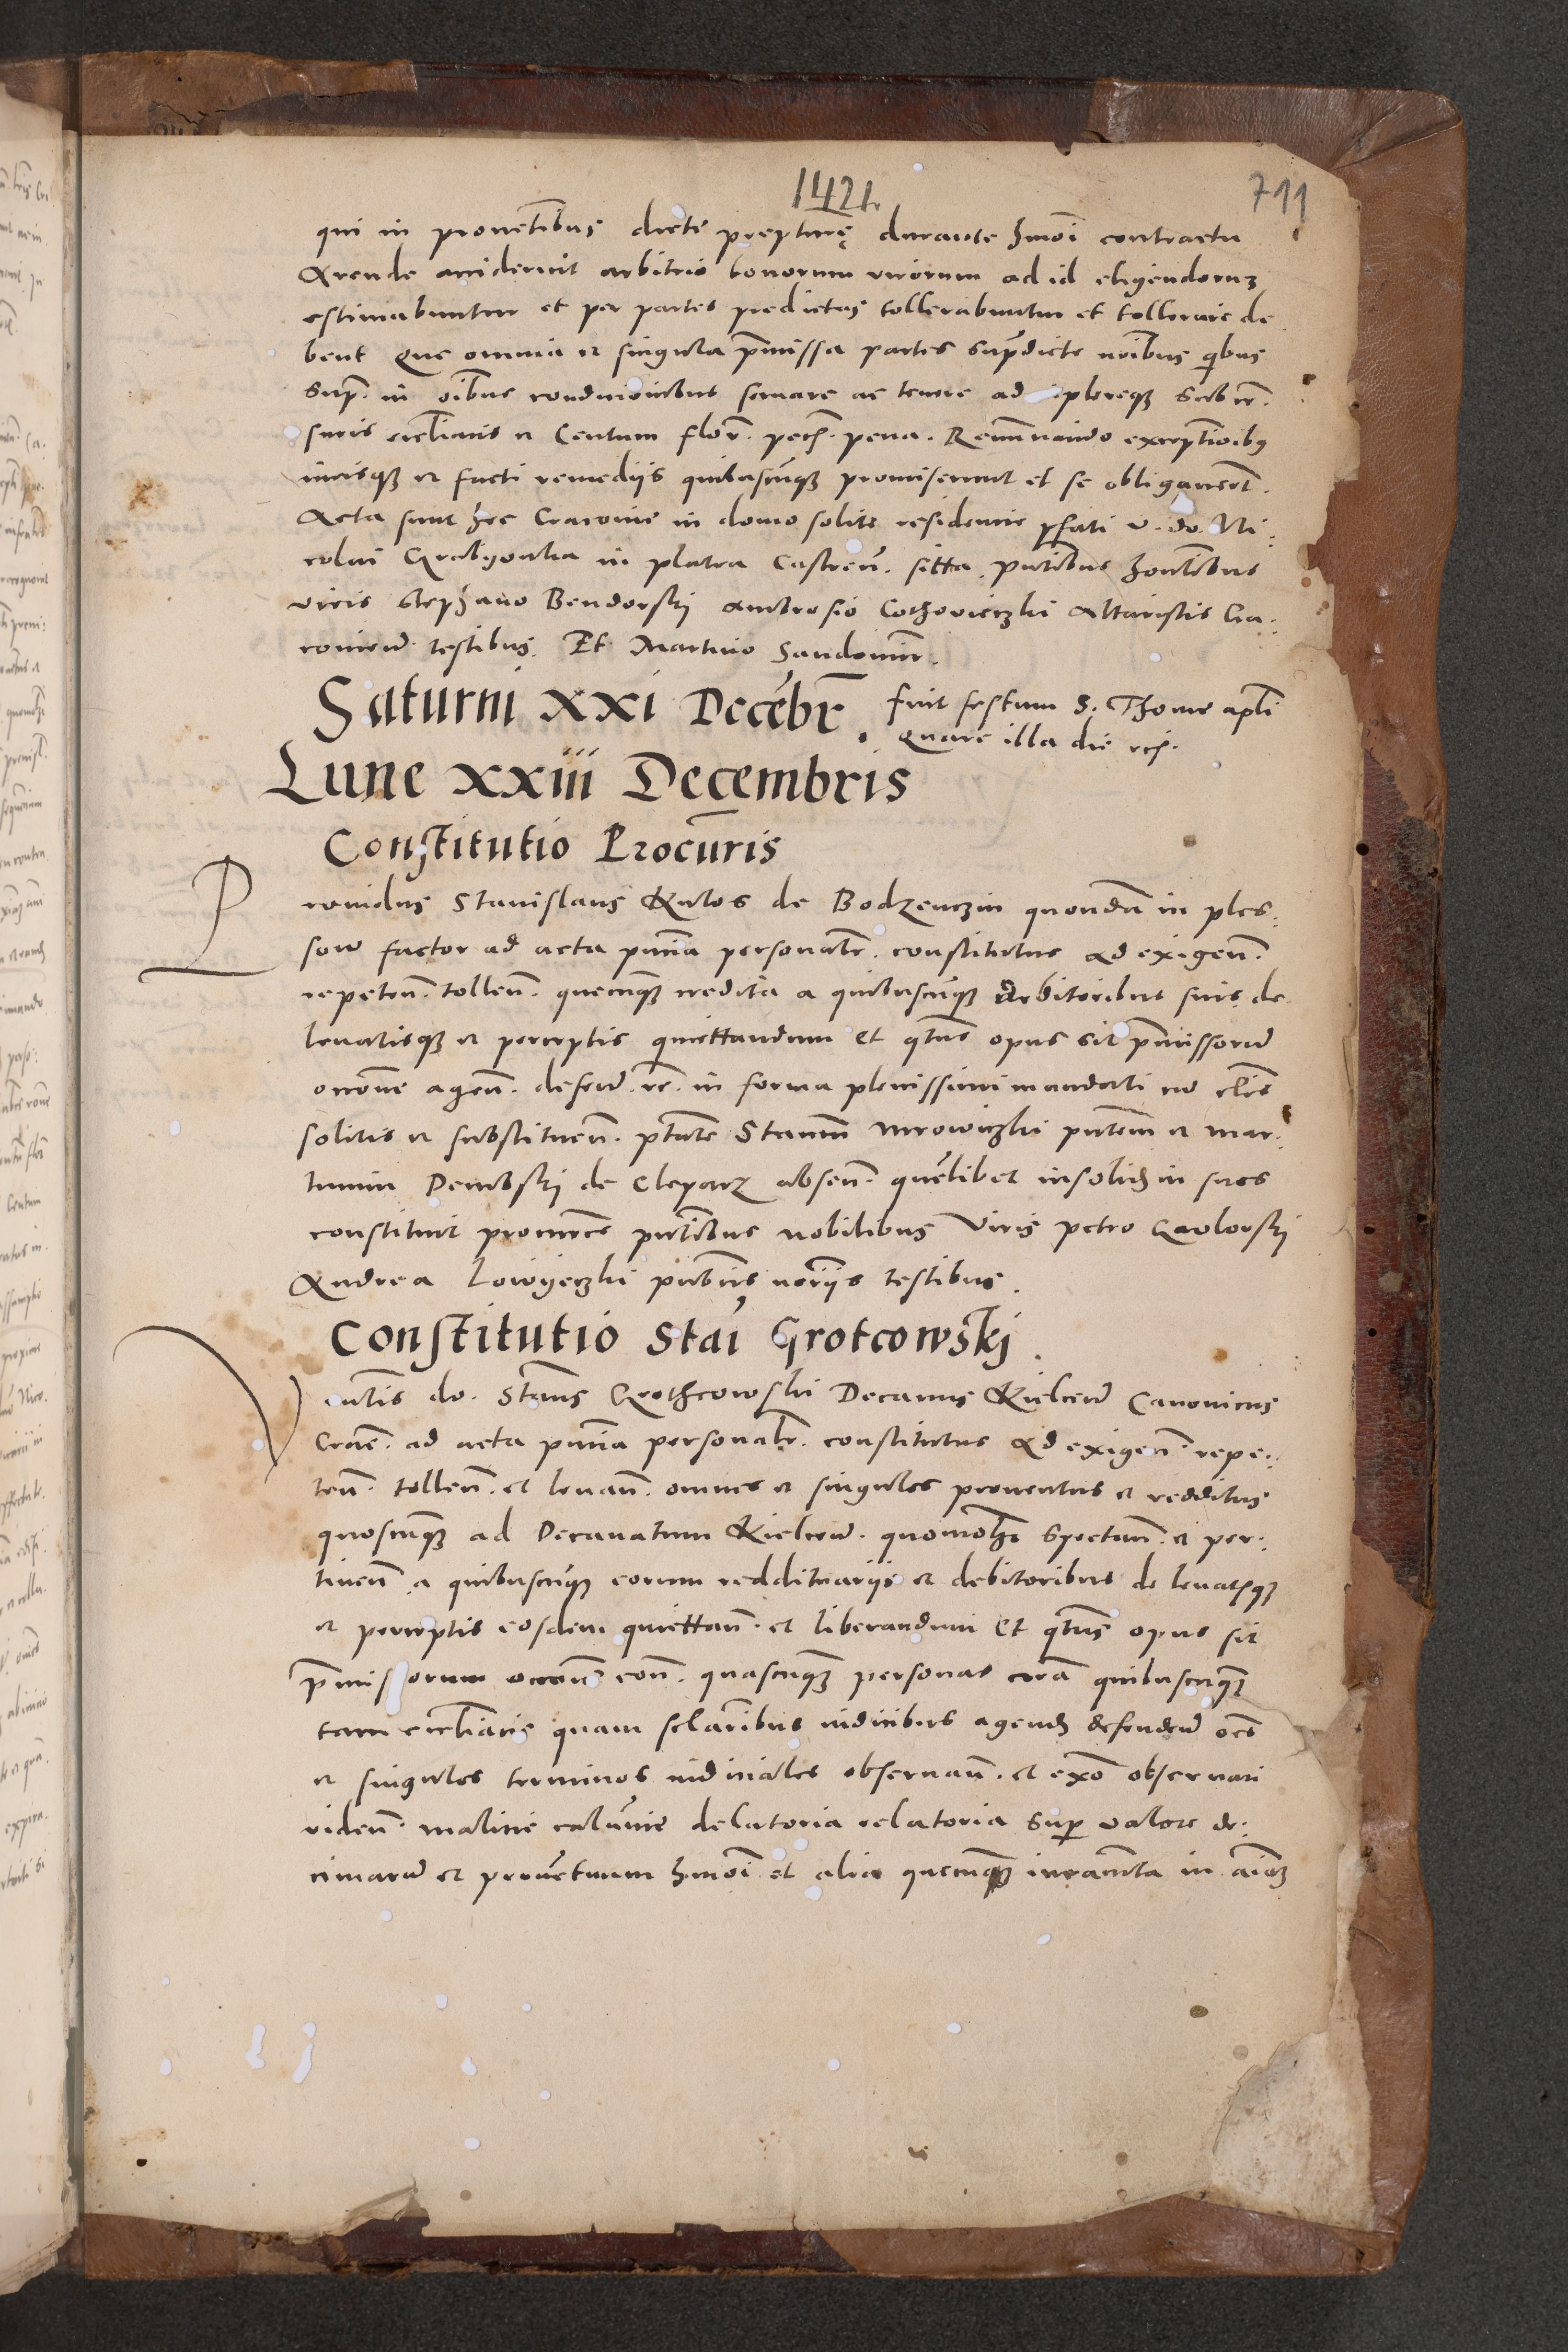 1421.
711
qui in proventibus dicte prepturę durante hmoi contractu
Arende acciderint arbitrio bonorum virorum ad id eligendorum
estimabuntur et per partes predictas tollerabuntur et tollerare de
bent Que omnia et singula pmissa partes supradicte noibus qbus
Supra in oibus condicionibus servare ac tenere ad implereque sub
suris eccliacis et Centum flor. pecs. pena. Renunciando exceptioibus
iurisque et facti remediis quibuscunque promiserunt et se obligaverunt.
Acta sunt hec Cracovie in domo solite residencie pfati v. do. Ni:
colai Grabyonka in platea Castren. sitta, pntibus hontibus
viris Stephano Bendorski Ambrosio Cothovieczki Altaristis Cra:
covien testibus. Et Martino Sandomir.
Saturni XXI Decebr. fuit festum S. Thome apli
Quare illa die
Lune XXIII Decembris
Constitutio Procuris
Providus Stanislaus Kulos de Bodzenczin quondam in ples:
sow factor ad acta pntia personalr. constitutus Ad exigen.
repeten. tollen. quecunque credita a quibuscunque debitoribus suis de
levatisque et perceptis quiettandum Et qtus opus sit pmissorum
occone agen. defen. re. in forma plenissimi mandati cum clis
solitis et substituen. ptate Stanm Mrowiczki pntem et Mar:
tinum Dembski de Cleparz absen. quelibet insolidum in suos
constituit procures pntibus nobilibus Viris Petro Gawlowski
Andrea Lowyeczki pubcis noriis testibus.
Constitutio Stai Grotcowskj.
Vnlis do. Stans Grothcowski Decanus Kielcen Canonicus
Crac. ad acta pntia personalr. constitutus Ad exigen. repe:
ten. tollen. et levan. omnes et singulos proventus et redditus
quoscunque ad Decanatum Kielcen. quomolt Spectan. et per:
tinen a quibuscunque eorum reddituariis et debitoribus de levatisque
et perceptis eosdem quiettan. et liberandum Et qtus opus sit
pmissorum occone con. quascunque personas cora quibuscunque
tam eccliacis quam selaribus iudicibus agend defenden oes
et singulos terminos iudiciales observan. et exo observari
viden. malicie calunie delatoria relatoria Super valore de:
cimarum et proventuum hmoi et alia quecunque iuramta in aiam